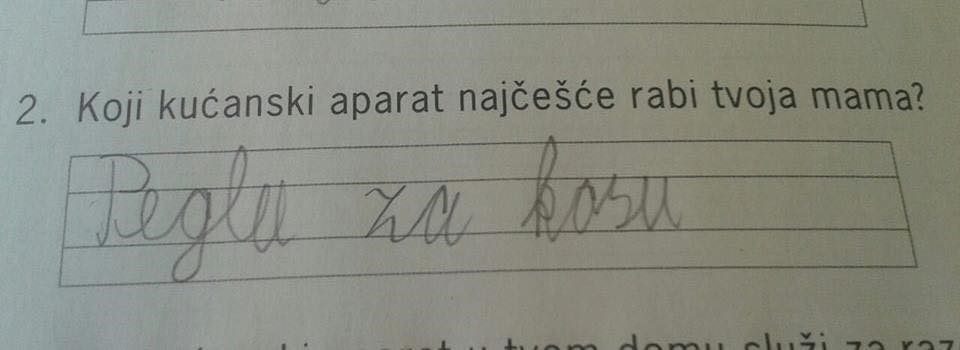 2. Koji kućanski aparat najčešće rabi tvoja mama?
Peglu za kosu
u tvom domu služi za raz